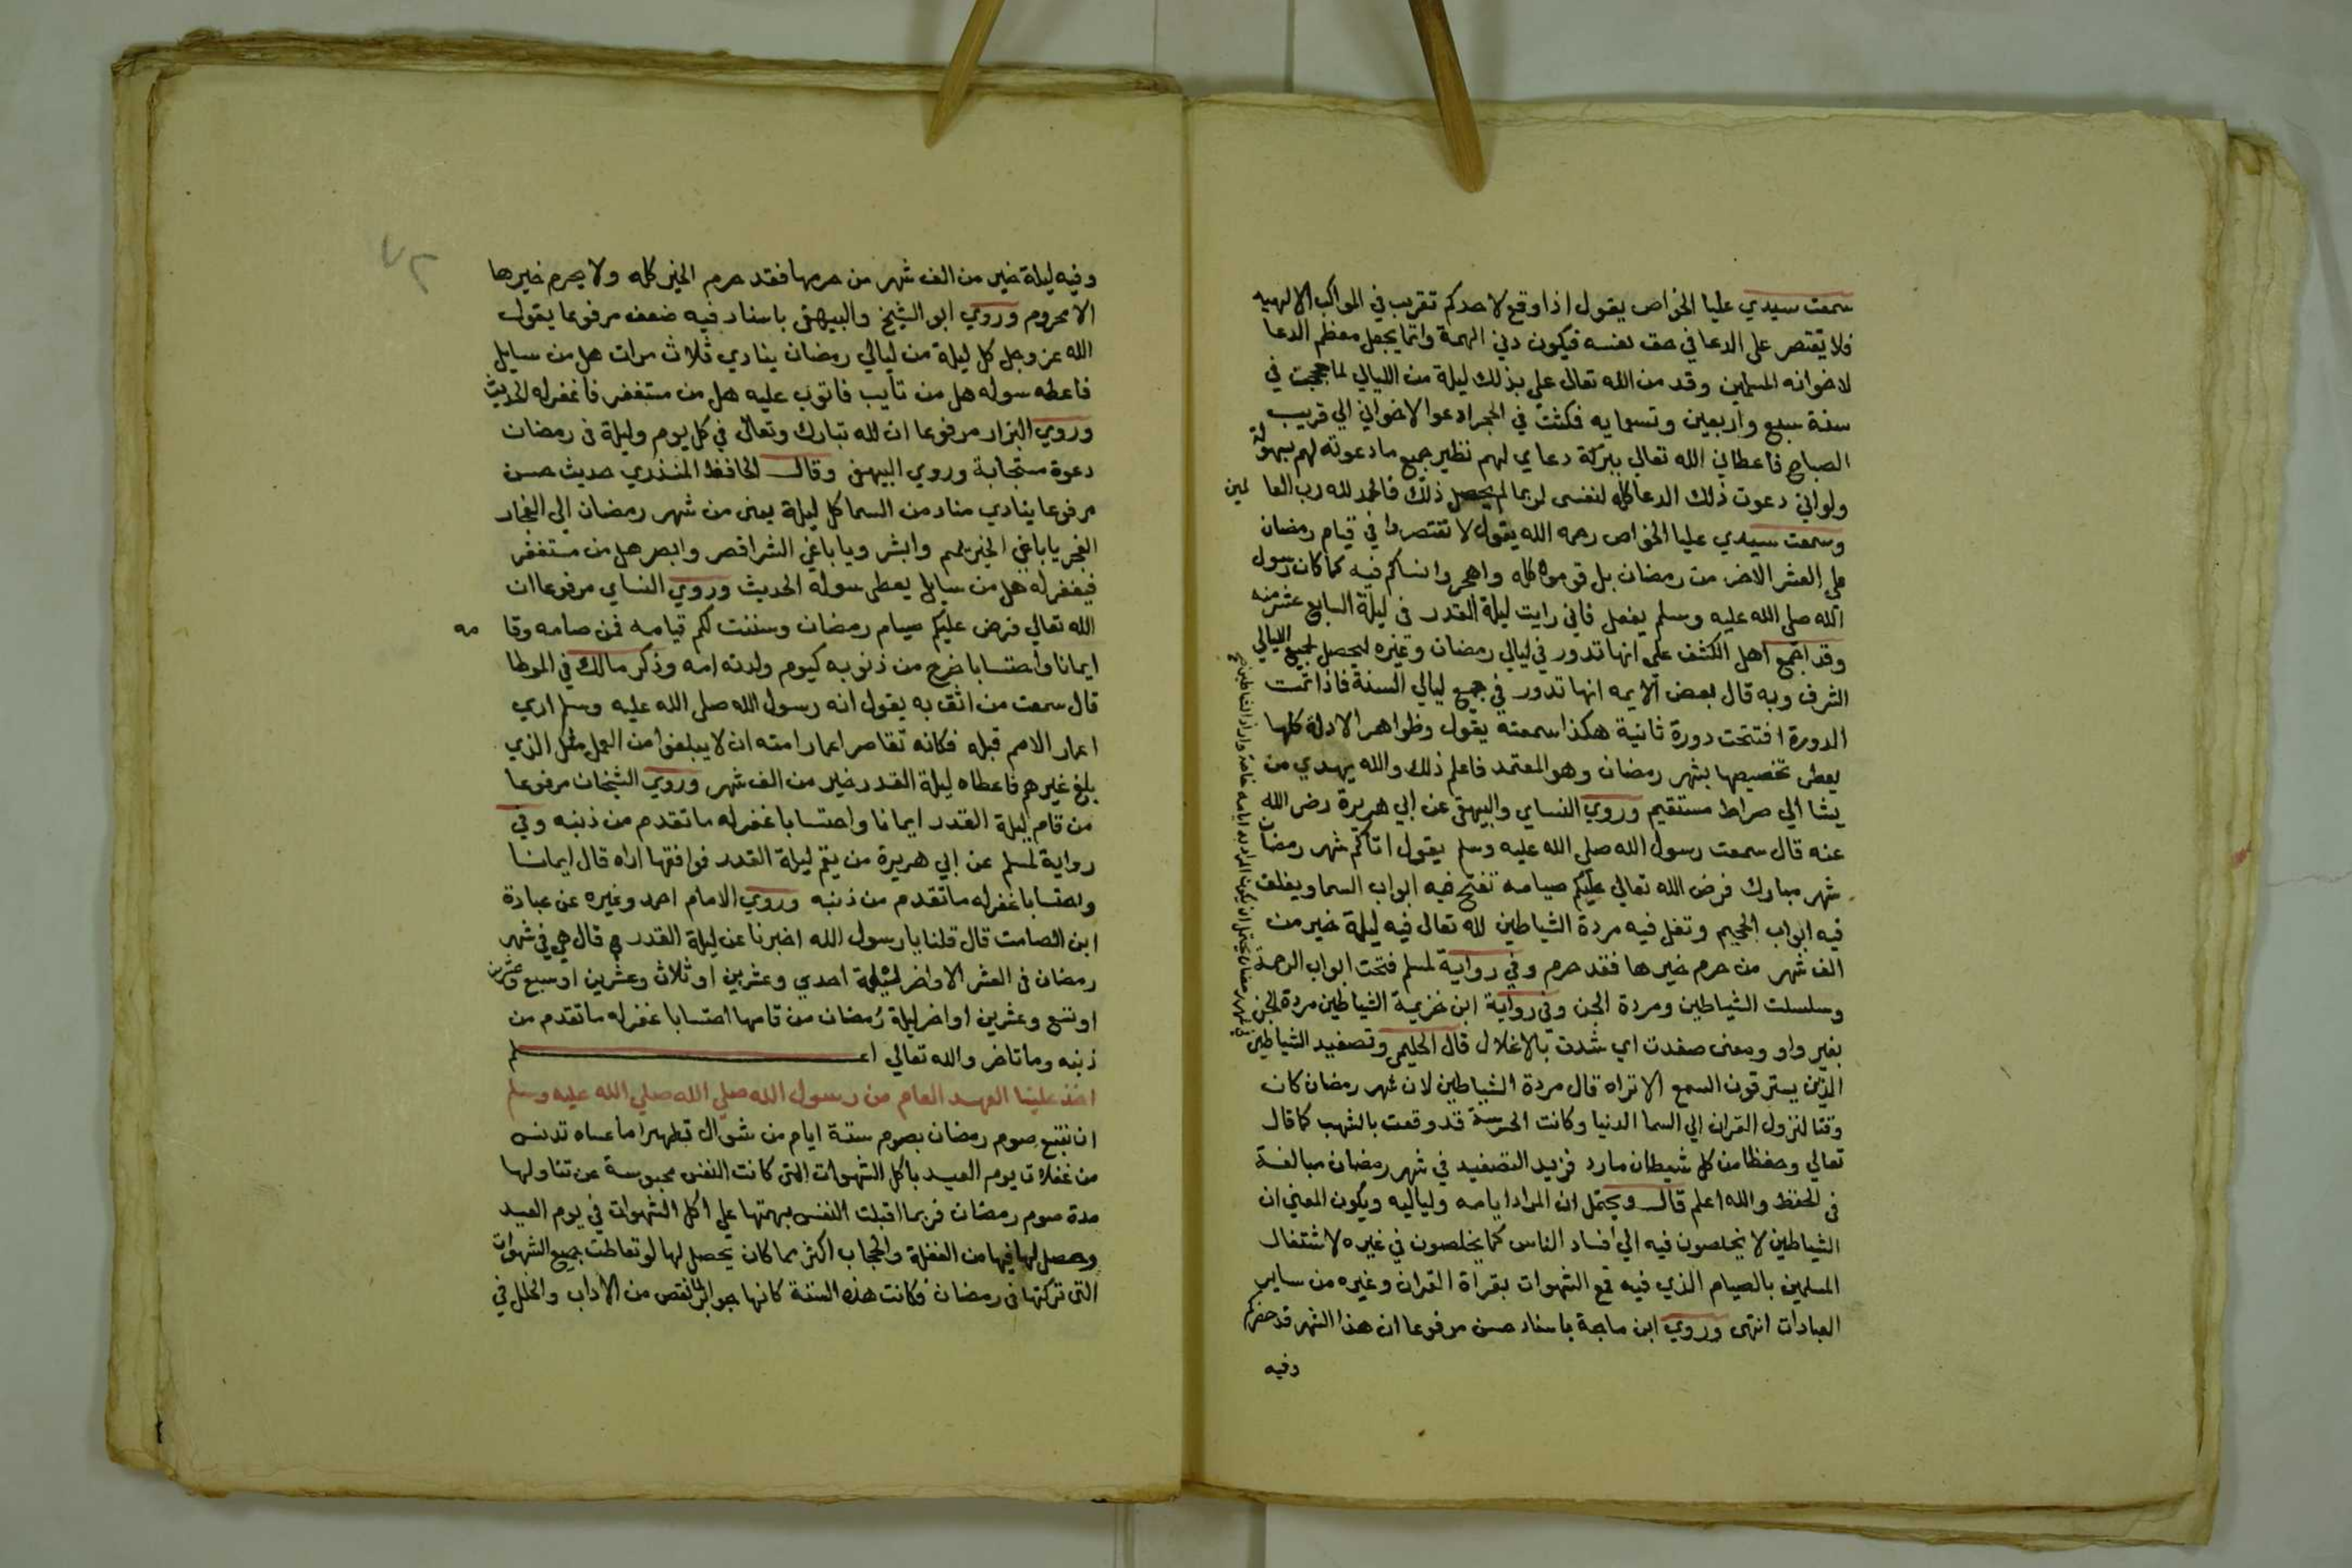 سمعت سيدي عليا الخواص يقول اذا وقع لاحدكم تقريب في المواكب الالهيه
فلا يقتصر على الدعا في حق نفسه فيكون دني الهمة وانما يجعل معظم الدعا
لاخوانه المسلمين وقد من الله تعالى علي بذلك ليلة من الليالي لما حججت في
سنة سبع واربعين وتسعمايه فكثت في الحجر ادعوا لاخواني الي قريب
الصباح فاعطاني الله تعالى ببركة دعاي لهم نظير جميع ما دعوته لهم بسهولة
ولو اني دعوت ذلك الدعا كله لنفسى لربما لم يحصل ذلك فالحمد لله رب العا لمين
وسمعت سيدي عليا الخواص رحمه الله يقول لا تقتصروا في قيام رمضان
على العشر الاخر من رمضان بل قوموه كله واهجروا نساكم فيه كما كان رسول
الله صلى الله عليه وسلم يفعل فاني رايت ليلة القدر في ليلة السابع عشر منه
وقد اجمع اهل الكشف على انها تدور في ليالي رمضان وغيره ليحصل لجميع الليالي
الشرف وبه قال بعض الايمه انها تدور في جميع ليالي السنة فاذا تمت
الدورة افتتحت دورة ثانية هكذا سمعته يقول وظواهر الادلة كلها
يعطى تخصيصها بشهر رمضان وهو المعتمد فاعلم ذلك والله يهدي من
يشا الي صراط مستقيم وروي النساي والبيهقى عن ابي هريرة رضى الله
عنه قال سمعت رسول الله صلى الله عليه وسلم يقول اتاكم شهر رمضان
شهر مبارك فرض الله تعالى عليكم صيامه تفتح فيه ابواب السما ويغلق
فيه ابواب الجحيم وتغل فيه مردة الشياطين لله تعالى فيه ليلة خير من
الف شهر من حرم خيرها فقد حرم وفي رواية لمسلم فتحت ابواب الرحمة
وسلسلت الشياطين ومردة الجن وفى رواية ابن خزيمة الشياطين مردة الجن
بغير واو ومعنى صفدت اي شدت بالاغلال قال الحليمى وتصفيد الشياطين
في شهر رمضان يحتمل ان يكون المراد به ايامه خاصة واراد الشياطين
الذين يسترقون السمع الا تراه قال مردة الشياطين لان شهر رمضان كان
وقتا لنزول القران الي السما الدنيا وكانت الحرسة قد وقعت بالشهب كما قال
تعالي وحفظا من كل شيطان مارد فزيد التصفيد في شهر رمضان مبالغة
فى الحفظ والله اعلم قال ويحتمل ان المراد ايامه ولياليه ويكون المعني ان
الشياطين لا يخلصون فيه الي افساد الناس كما يخلصون في غيره لاشتغال
المسلمين بالصيام الذي فيه قمع الشهوات بقراة القران وغيره من ساير
العبادات انتهى وروي ابن ماجة باسناد حسن مرفوعا ان هذا الشهر قد حضركم
وفيه
٧٢
وفيه ليلة خير من الف شهر من حرمها فقد حرم الخير كله ولا يحرم خيرها
الا محروم وروي ابو الشيخ والبيهقى باسناد فيه ضعف مرفوعا يقول
الله عز وجل كل ليلة من ليالي رمضان ينادي ثلاث مرات هل من سايل
فاعطه سوله هل من تايب فاتوب عليه هل من مستغفر فاغفر له الحديث
وروي البزار مرفوعا ان لله تبارك وتعالى في كل يوم وليلة فى رمضان
دعوة مستجابة وروي البيهقى وقال الحافظ المنذري حديث حسن
مرفوعا ينادي مناد من السما كل ليلة يعنى من شهر رمضان الى انفجار
الفجر يا باغى الخير يمم وابشر ويا باغي الشر اقصر وابصر هل من مستغفر
فيغفر له هل من سايل يعطى سوله الحديث وروي النساي مرفوعا ان
الله تعالي فرض عليكم صيام رمضان وسننت لكم قيامه فمن صامه وقا مه
ايمانا واحتسابا خرج من ذنوبه كيوم ولدته امه وذكر مالك في الموطا
قال سمعت من اثق به يقول انه رسول الله صلى الله عليه وسلم اري
اعمار الامم قبله فكانه تقاصر اعمار امته ان لا يبلغوا من العمل مثل الذي
بلغ غيرهم فاعطاه ليلة القدر خير من الف شهر وروي الشيخان مرفوعا
من قام ليلة القدر ايمانا واحتسابا غفر له ما تقدم من ذنبه وفي
رواية لمسلم عن ابي هريرة من يقم ليلة القدر فوافقها اراه قال ايمانا
واحتسابا غفر له ما تقدم من ذنبه وروي الامام احمد وغيره عن عبادة
ابن الصامت قال قلنا يا رسول الله اخبرنا عن ليلة القدر قال هي في شهر
رمضان فى العشر الاواخر ليلة احدي وعشرين او ثلاث وعشرين او سبع وعشرين
او تسع وعشرين او اخر ليلة رمضان من قامها احتسابا غفر له ما تقدم من
ذنبه وما تاخر والله تعالي اعلم
اخذ علينا العهد العام من رسول الله صلى الله صلي الله عليه وسلم
ان نتبع صوم رمضان بصوم ستة ايام من شوال تطهيرا ما عساه تدنس
من غفلات يوم العيد باكل الشهوات التى كانت النفس محبوسة عن تناولها
مدة صوم رمضان فربما اقبلت النفس بهمتها على اكل الشهوات في يوم العيد
وحصل لها فيها من الغفلة والحجاب اكثر مما كان يحصل لها لو تعاطت جميع الشهوات
التى تركتها فى رمضان فكانت هذه الستة كانها جوابر لما نقص من الاداب والخلل في